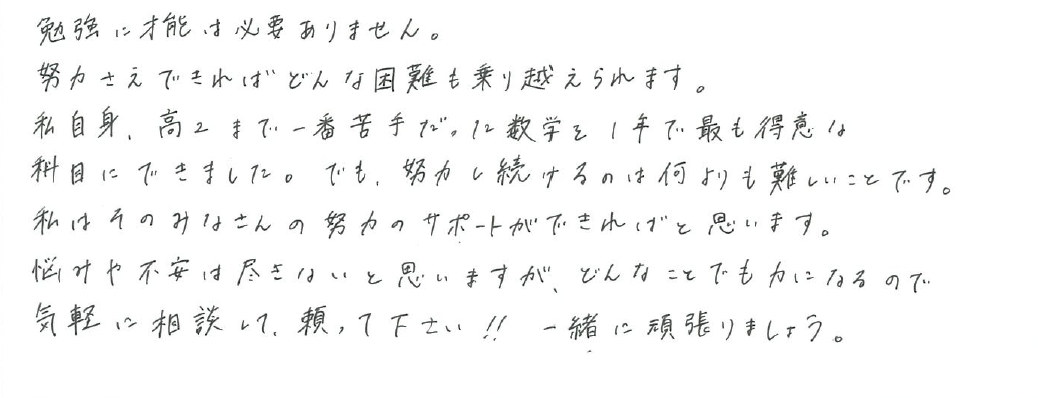 勉強に才能は必要ありません。
努力さえできればどんな困難も乗り越えられます。
私自身、高2まで一番苦手だった数学を1年で最も得意な
科目にできました。でも、努力し続けるのは何よりも難しいことです。
私はそのみなさんの努力のサポートができればと思います。
悩みや不安は尽きないと思いますが、どんなことでも力になるので
気軽に相談して、頼って下さい!! 一緒に頑張りましょう。